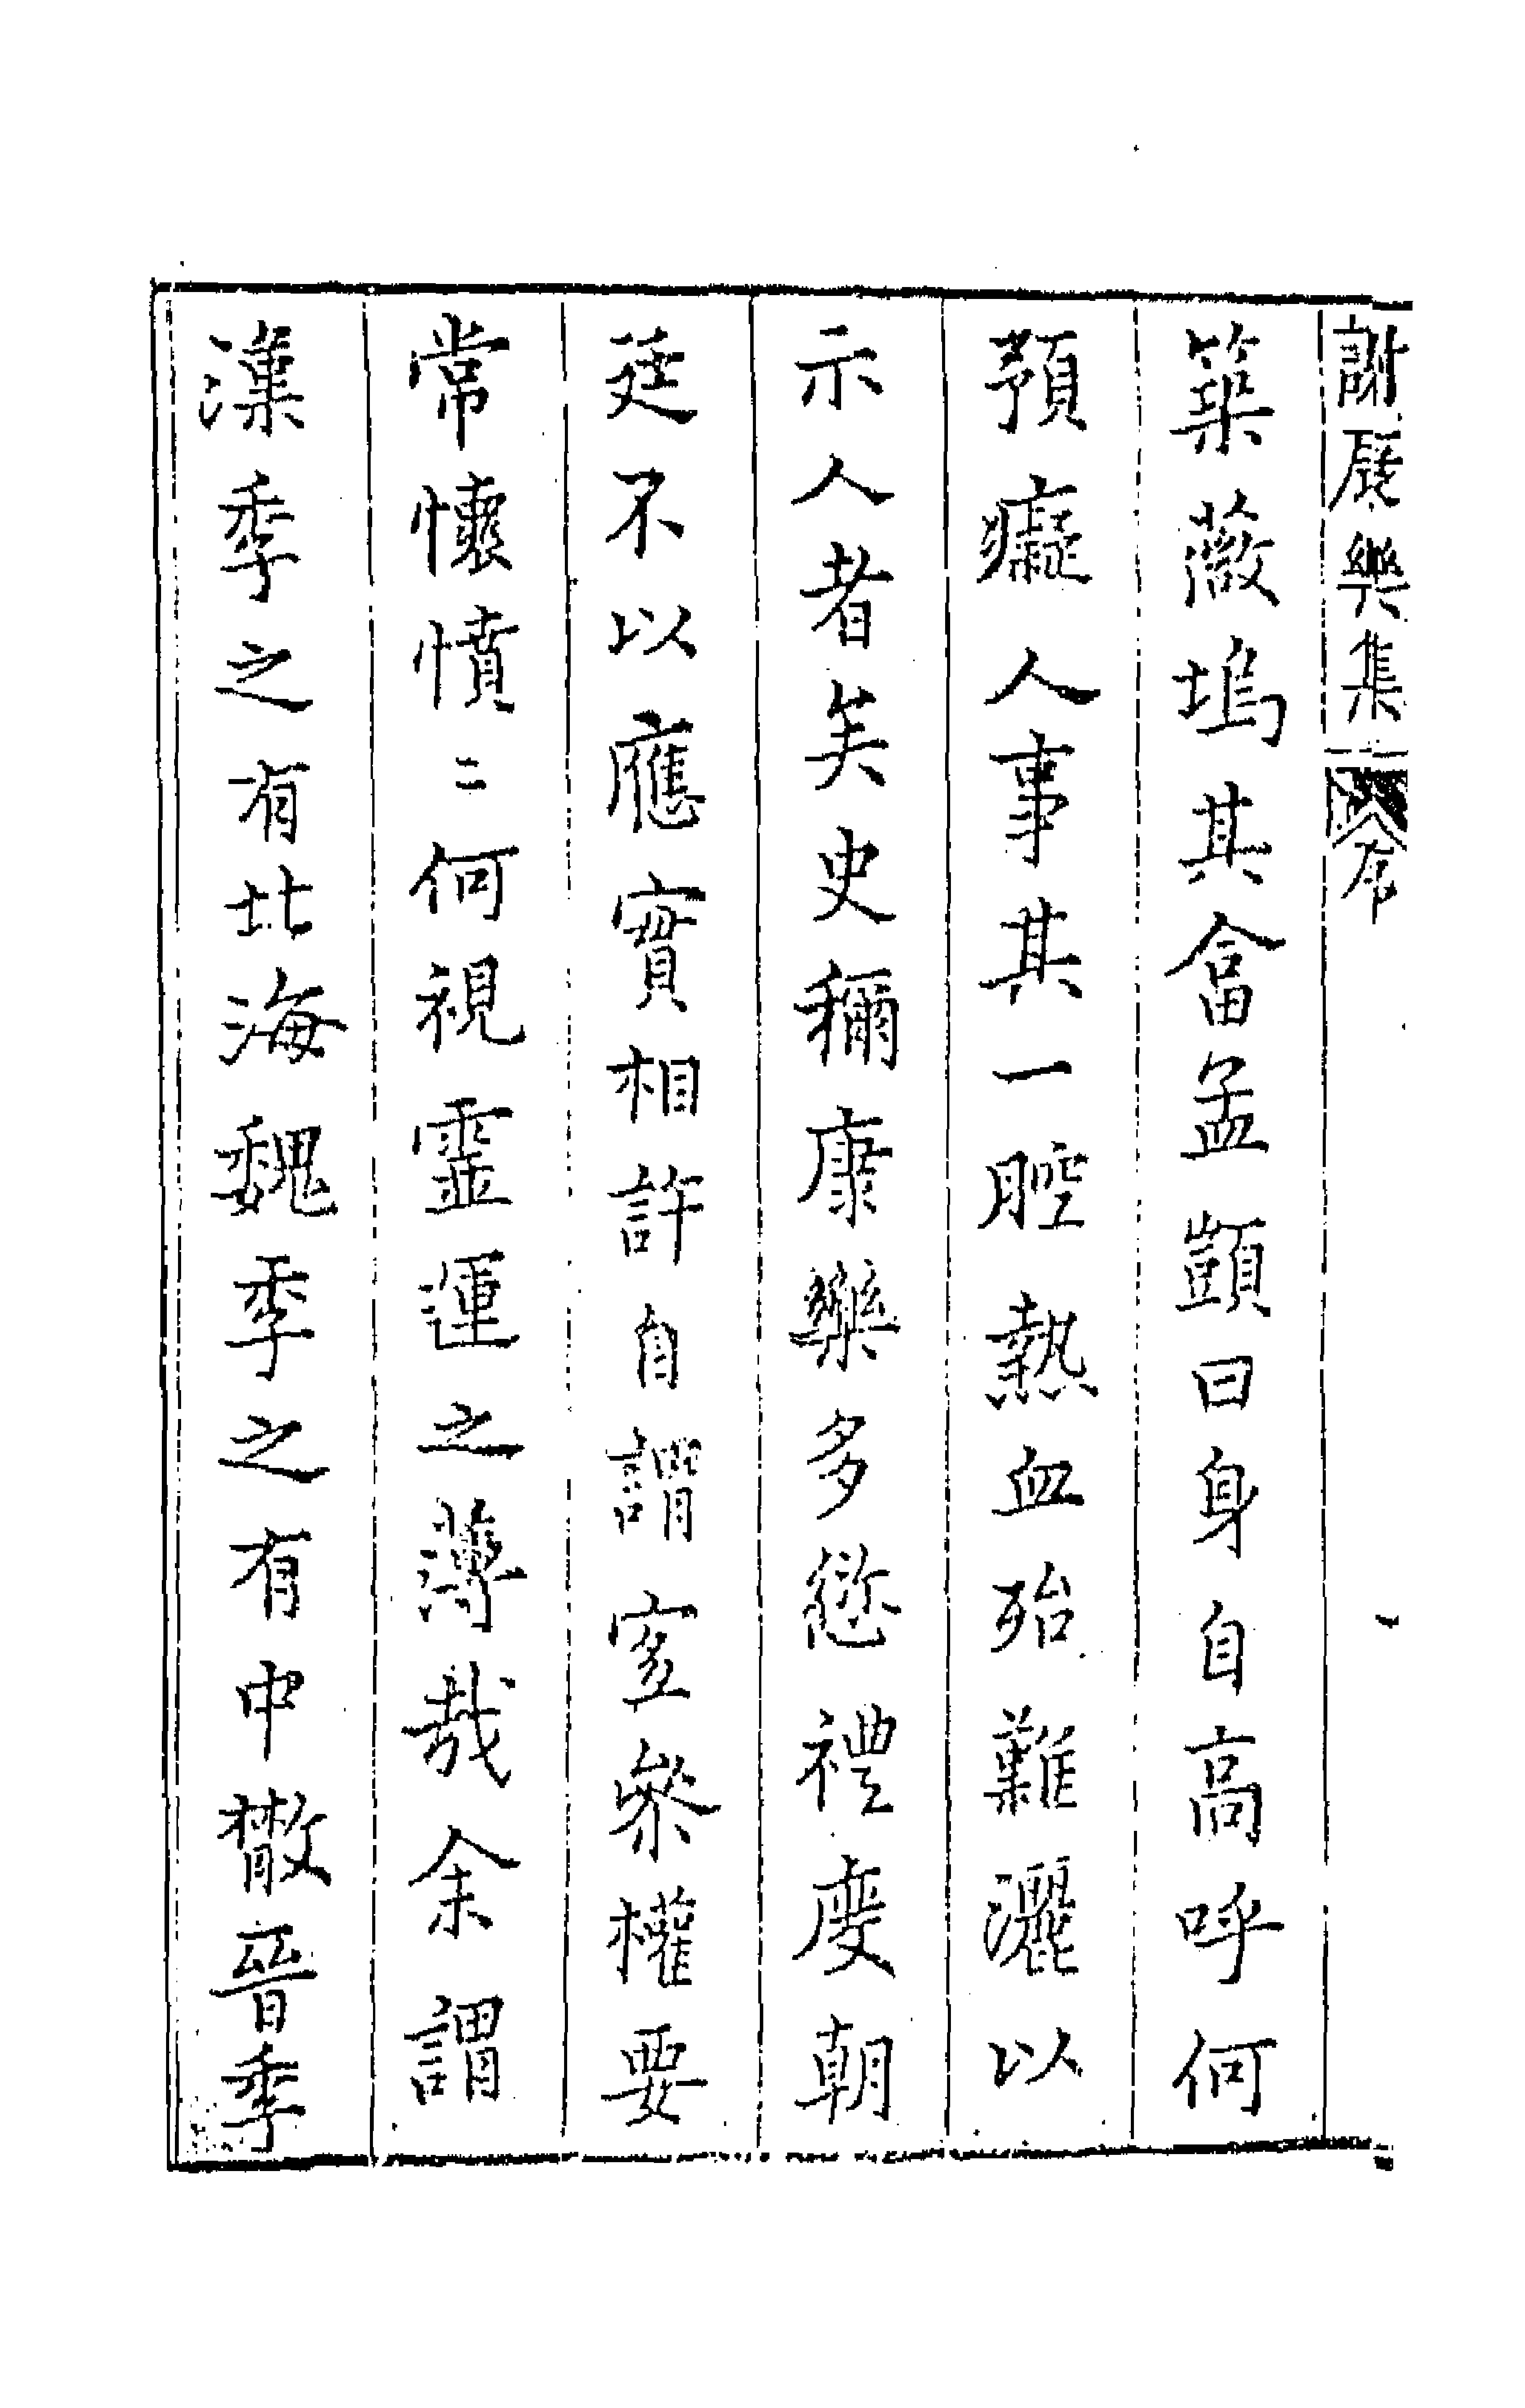 謝康樂集 序
築薇塢其畣孟顗曰身自高呼何
預癡人事其一腔熱血殆難灑以
示人者矣史稱康樂多愆禮度朝
廷不以應實相許自謂宐參權要
常懷憤〻何視霊運之薄哉余謂
漢季之有北海魏季之有中散晉季